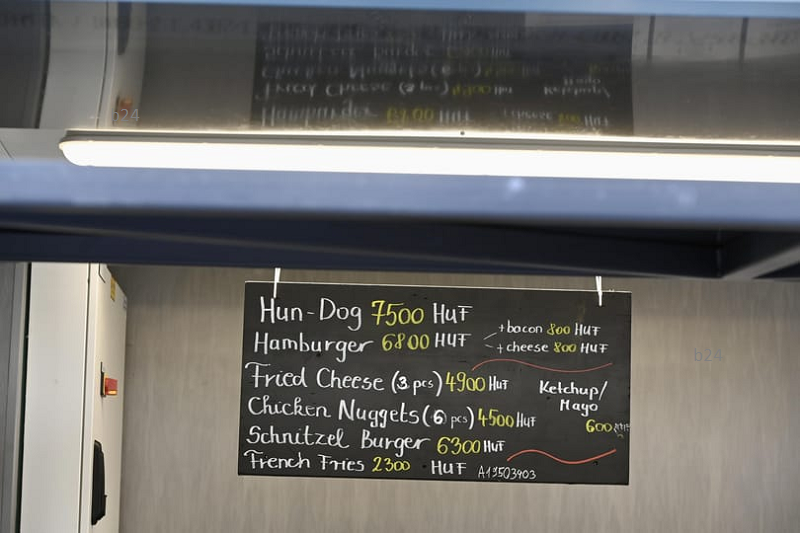 Hun-Dog 7500 HUF
Hamburger 6800 HUF
+bacon 800 HUF
+cheese 800 HUF
Fried Cheese (3 pcs) 4900 HUF
Ketchup/
Mayo
600
Chicken Nuggets (6 pcs) 4500 HUF
Schnitzel Burger 6300 HUF
French Fries 2300 HUF
A13503903
b24
b24